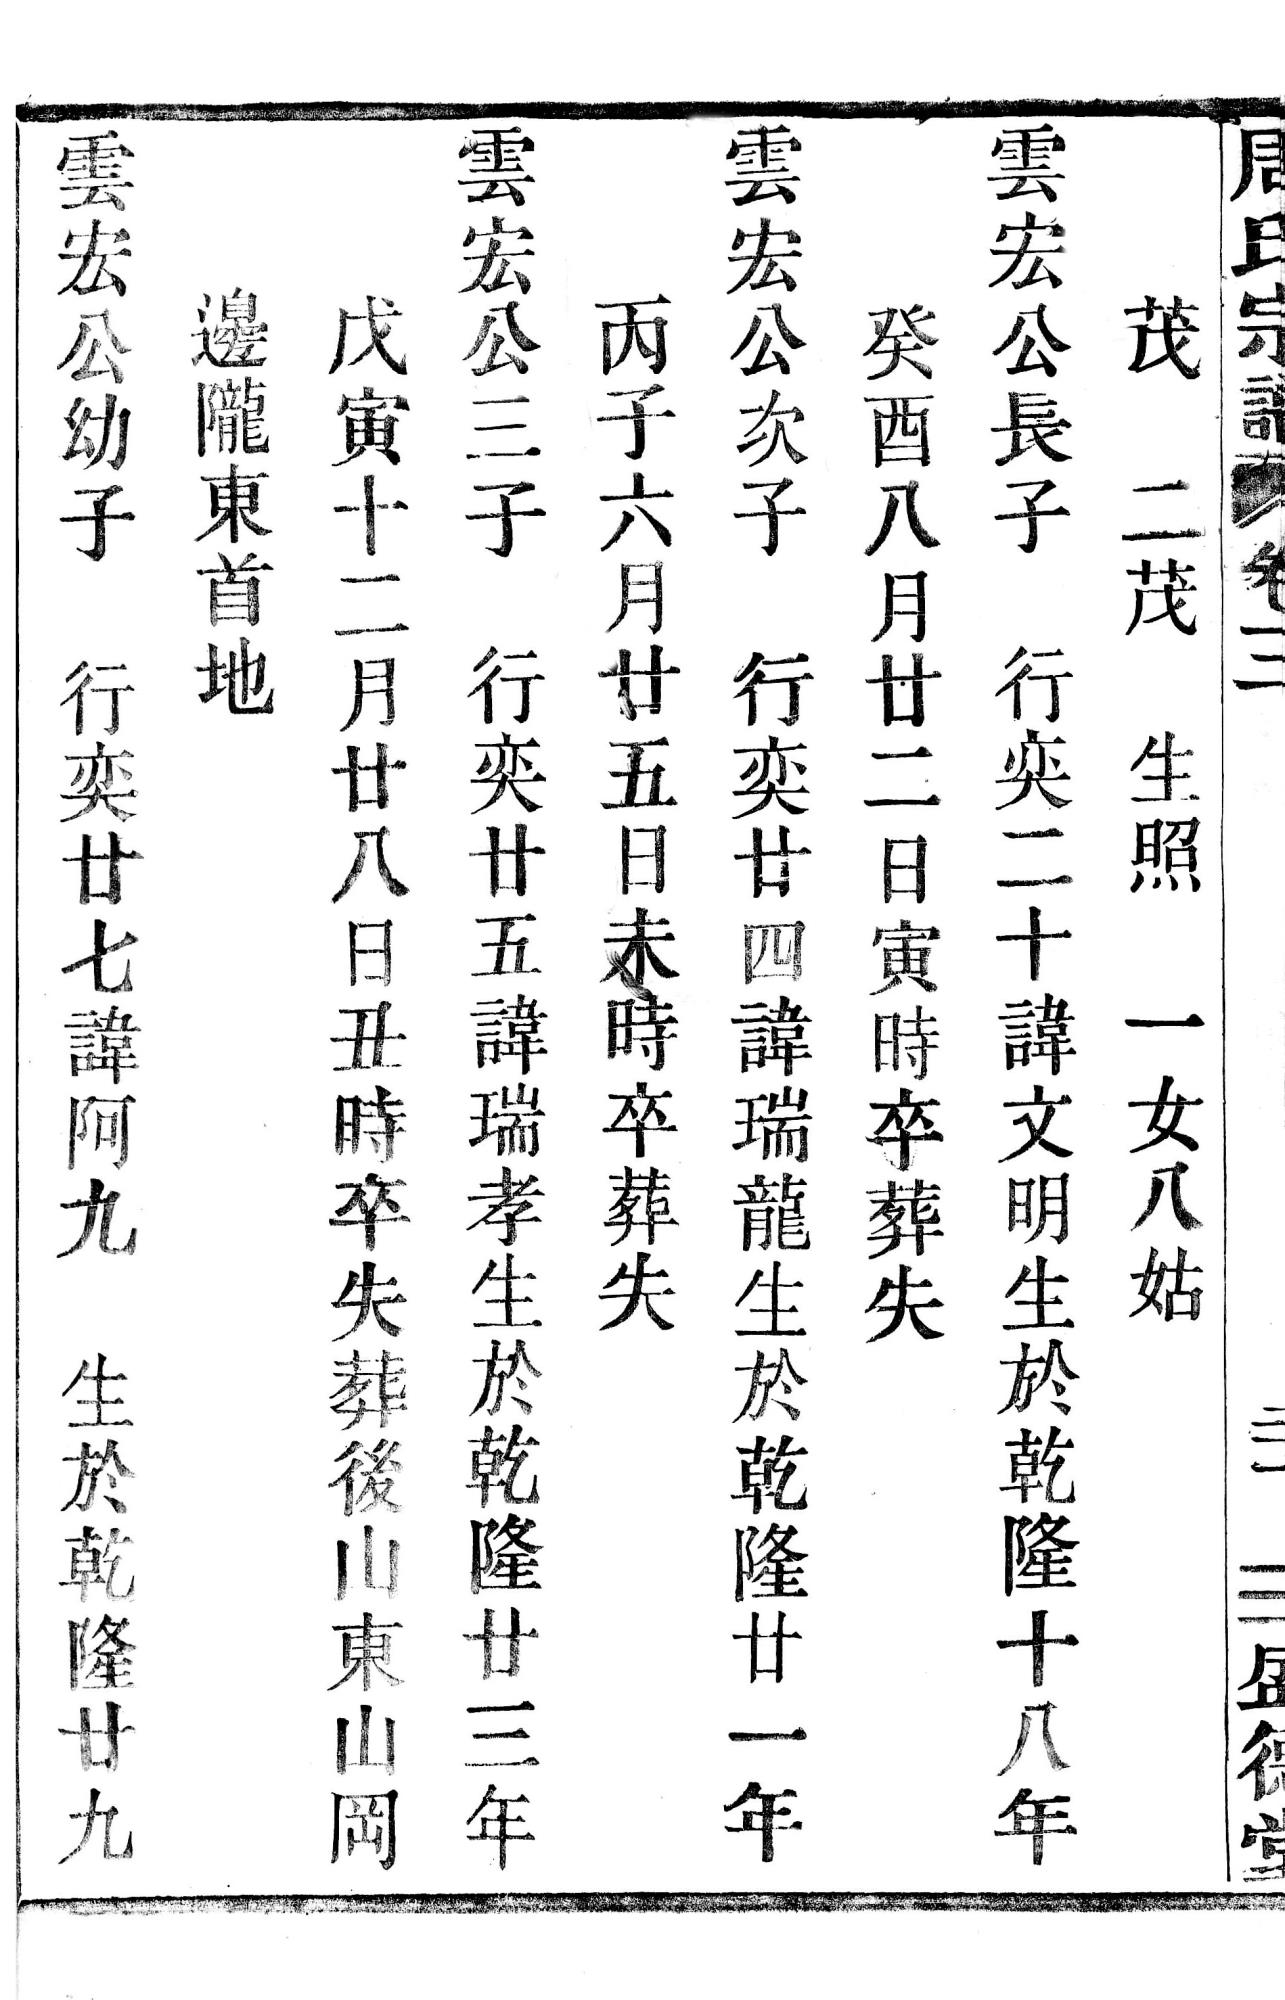 周氏宗譜 卷三 三 三 盛德堂
茂 二茂 生照 一女八姑
雲宏公長子 行奕二十諱文明生於乾隆十八年
癸酉八月廿二日寅時卒葬失
雲宏公次子 行奕廿四諱瑞龍生於乾隆廿一年
丙子六月廿五日未時卒葬失
雲宏公三子 行奕廿五諱瑞孝生於乾隆廿三年
戊寅十二月廿八日丑時卒失葬後山東山岡
邊隴東首地
雲宏公幼子 行奕廿七諱阿九 生於乾隆廿九